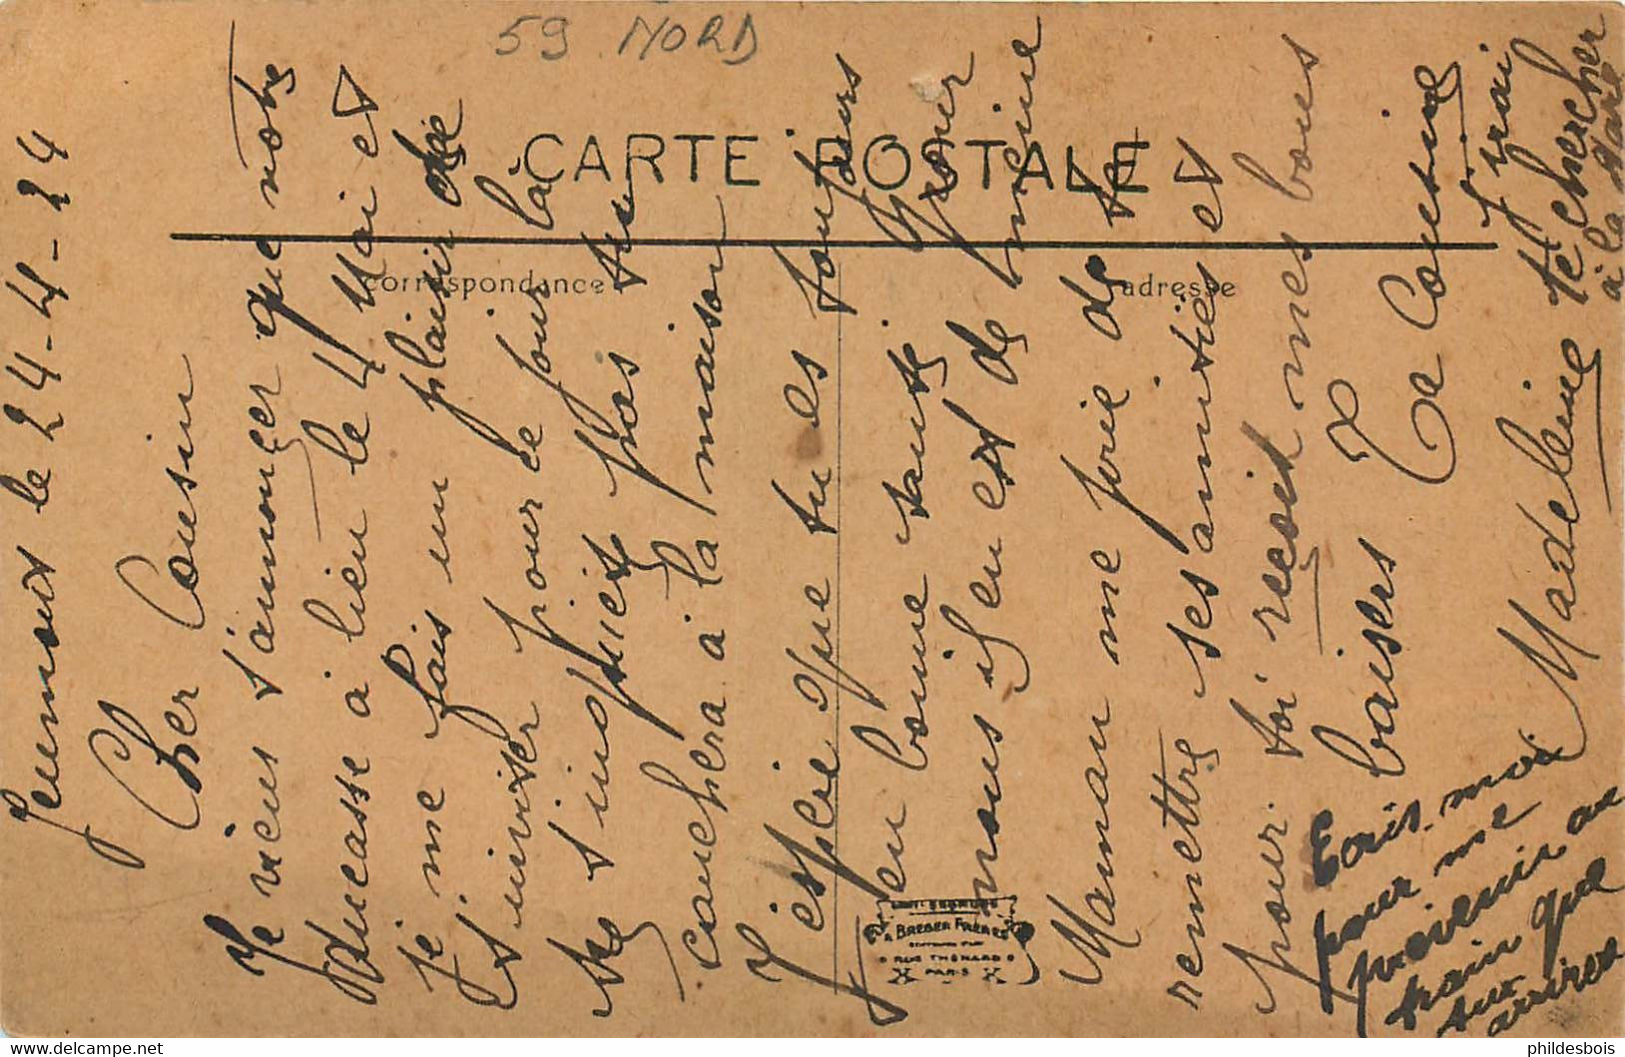 59 NORD
CARTE POSTALE
correspondance
adresse
Jeumont le 24-4-24
Cher Cousin
Je viens t'annonçer que notre
ducasse à lieu le 4 Mai et
je me fais un plaisir de
t'inviter pour ce jour là
ne t'inquiète pas tu
couchera à la maison
J'espère que tu es toujours
en bonne santé pour
nous il en est de même
Maman me prie de te
remettre ses amitiés et
pour toi reçoit mes bons
baisers Ta Cousine
Madeleine
J'irai
te chercher
à la gare
Ecris-moi
pour me
prévenir au
train que
tu
arrivera
A. BREGER FRÈRES
RUE THÉNARD
PARIS
phildesbois